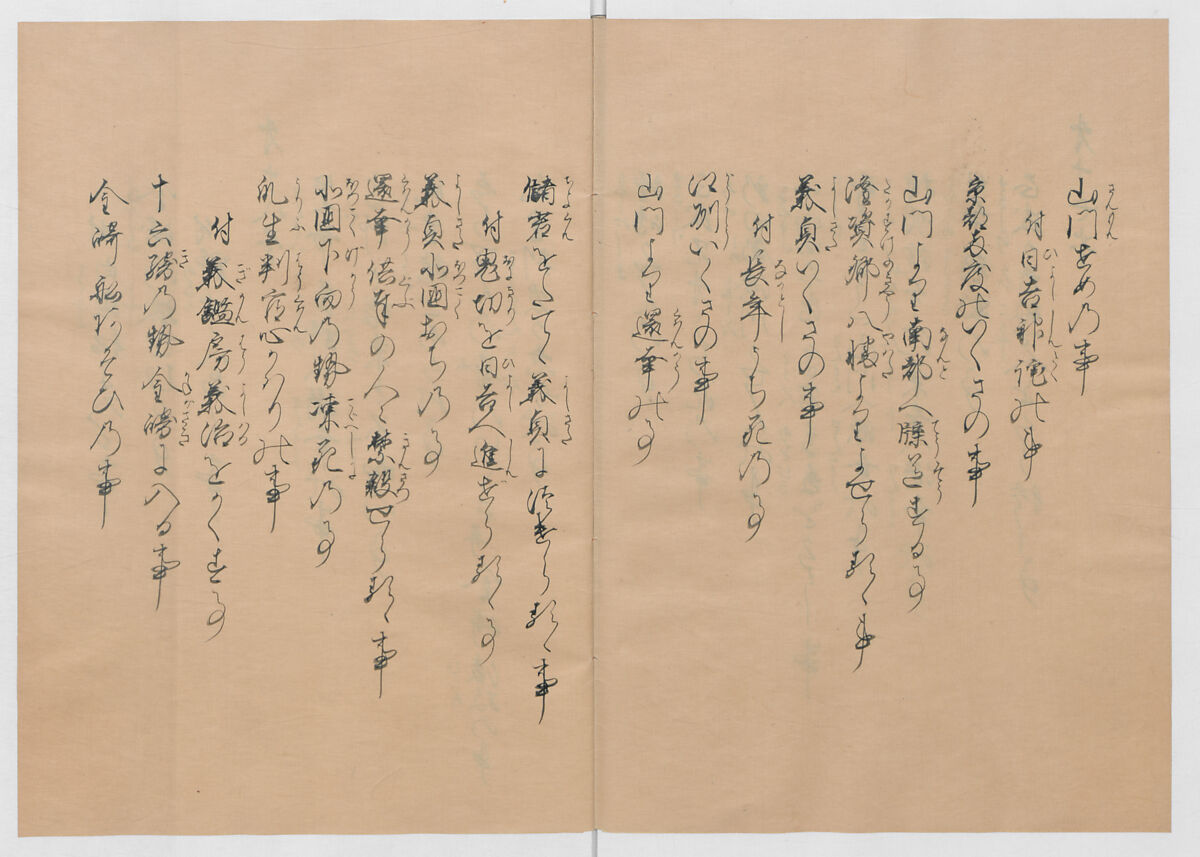 山門せめの事
付日吉神託の事
京都両度のいくさの事
山門より南都へ牒送する事
隆資卿八幡よりよせらるゝ事
義貞いくさの事
付長年うち死の事
江州いくさの事
山門より還幸の事
儲君をたてゝ義貞につけらるゝ事
付鬼切を日吉へ進ぜらるゝ事
義貞北国おちの事
還幸供奉の人々禁殺せらるゝ事
北国下向の勢凍死の事
瓜生判官心かはりの事
付義鑑房義治をかくす事
十六騎の勢金崎に入る事
金崎船あそひの事